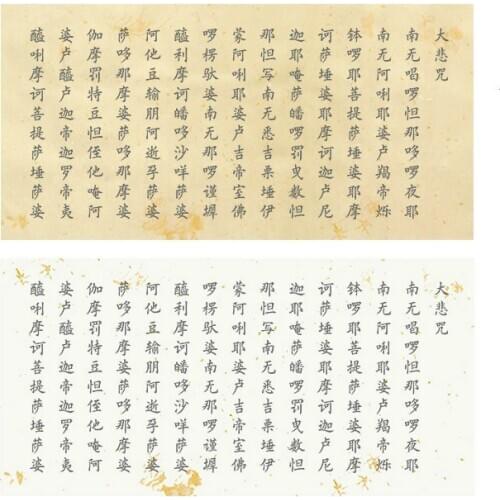 大悲咒
南无喝啰怛那哆啰夜耶
南无阿唎耶婆卢羯帝烁
钵啰耶菩提萨埵婆耶摩
诃萨埵婆耶摩诃迦卢尼
迦耶唵萨皤啰罚曳数怛
那怛写南无悉吉栗埵伊
蒙阿唎耶婆卢吉帝室佛
啰楞驮婆南无那啰谨墀
醯利摩诃皤哆沙咩萨婆
阿他豆输朋阿逝孕萨婆
萨哆那摩婆萨哆那摩婆
伽摩罚特豆怛侄他唵阿
婆卢醯卢迦帝迦罗帝夷
醯唎摩诃菩提萨埵萨婆
大悲咒
南无喝啰怛那哆啰夜耶
南无阿唎耶婆卢羯帝烁
钵啰耶菩提萨埵婆耶摩
诃萨埵婆耶摩诃迦卢尼
迦耶唵萨皤啰罚曳数怛
那怛写南无悉吉栗埵伊
蒙阿唎耶婆卢吉帝室佛
啰楞驮婆南无那啰谨墀
醯利摩诃皤哆沙咩萨婆
阿他豆输朋阿逝孕萨婆
萨哆那摩婆萨哆那摩婆
伽摩罚特豆怛侄他唵阿
婆卢醯卢迦帝迦罗帝夷
醯唎摩诃菩提萨埵萨婆